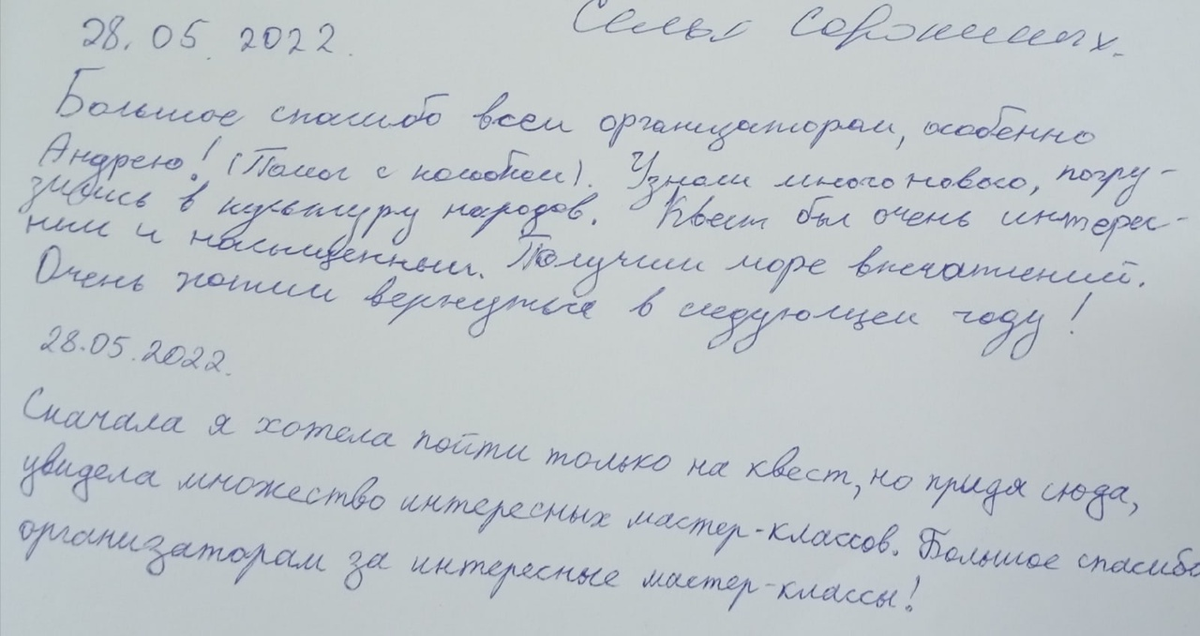 Семья Сорокиных.
28.05.2022.
Большое спасибо всем организаторам, особенно
Андрею! (Помог с колобком). Узнали много нового, погру-
зились в культуру народов. Квест был очень интерес-
ным и насыщенным. Получили море впечатлений.
Очень хотим вернуться в следующем году!
28.05.2022.
Сначала я хотела пойти только на квест, но придя сюда,
увидела множество интересных мастер-классов. Большое спасибо
организаторам за интересные мастер-классы!